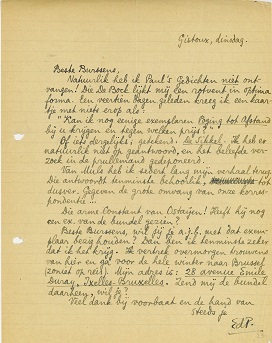 Gistoux, dinsdag.
Beste Burssens,
Natuurlijk heb ik Paul's Gedichten niet ont-
vangen! Die De Bock lijkt mij een rotvent in optima
forma. Een veertien dagen geleden kreeg ik een kaar-
tje met niets erop als:
"Kan ik nog eenige exemplaren Poging tot Afstand
bij u krijgen en tegen welken prijs?"
Of iets dergelijks; getekend: De Sikkel. Ik heb er
natuurlijk niet op geantwoord, en het beleefde ver-
zoek in de prullemand gedeponeerd.
Van Mule heb ik mijn verhaal terug.
Die antwoordt tenminste behoorlijk, tot
dusver. Gegeven de groote omvang van onze korres-
pondentie...
Die arme Constant van Ostaijen! Heeft hij nog
een ex. van de bundel gezien?
Beste Burssens, wil jij a.j.b. met dat exem-
plaar bezig houden? Dan ben ik tenminste zeker
dat ik het krijg. Ik vertrek overmorgen trouwens
van hier en ga voor de heele winter naar Brussel
(zoniet op reis). Mijn adres is: 28 avenue Emile
Duray, Ixelles-Bruxelles. Zend mij de bundel
daarheen, wil je?
Veel dank bij voorbaat en de hand van
steeds je
EdP.